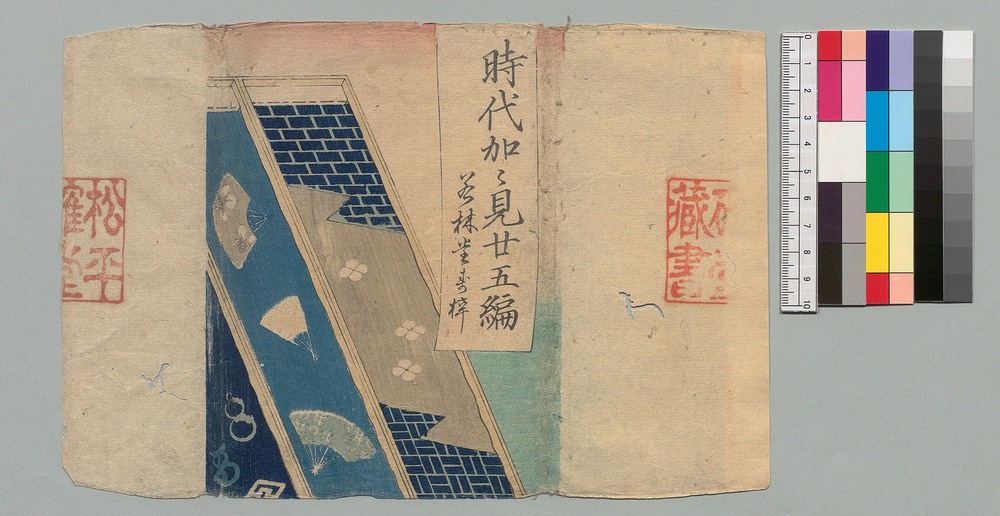 時代加〻見廿五編
若林堂寿梓
松平
蔵書
0
1
2
3
4
5
6
7
8
9
10